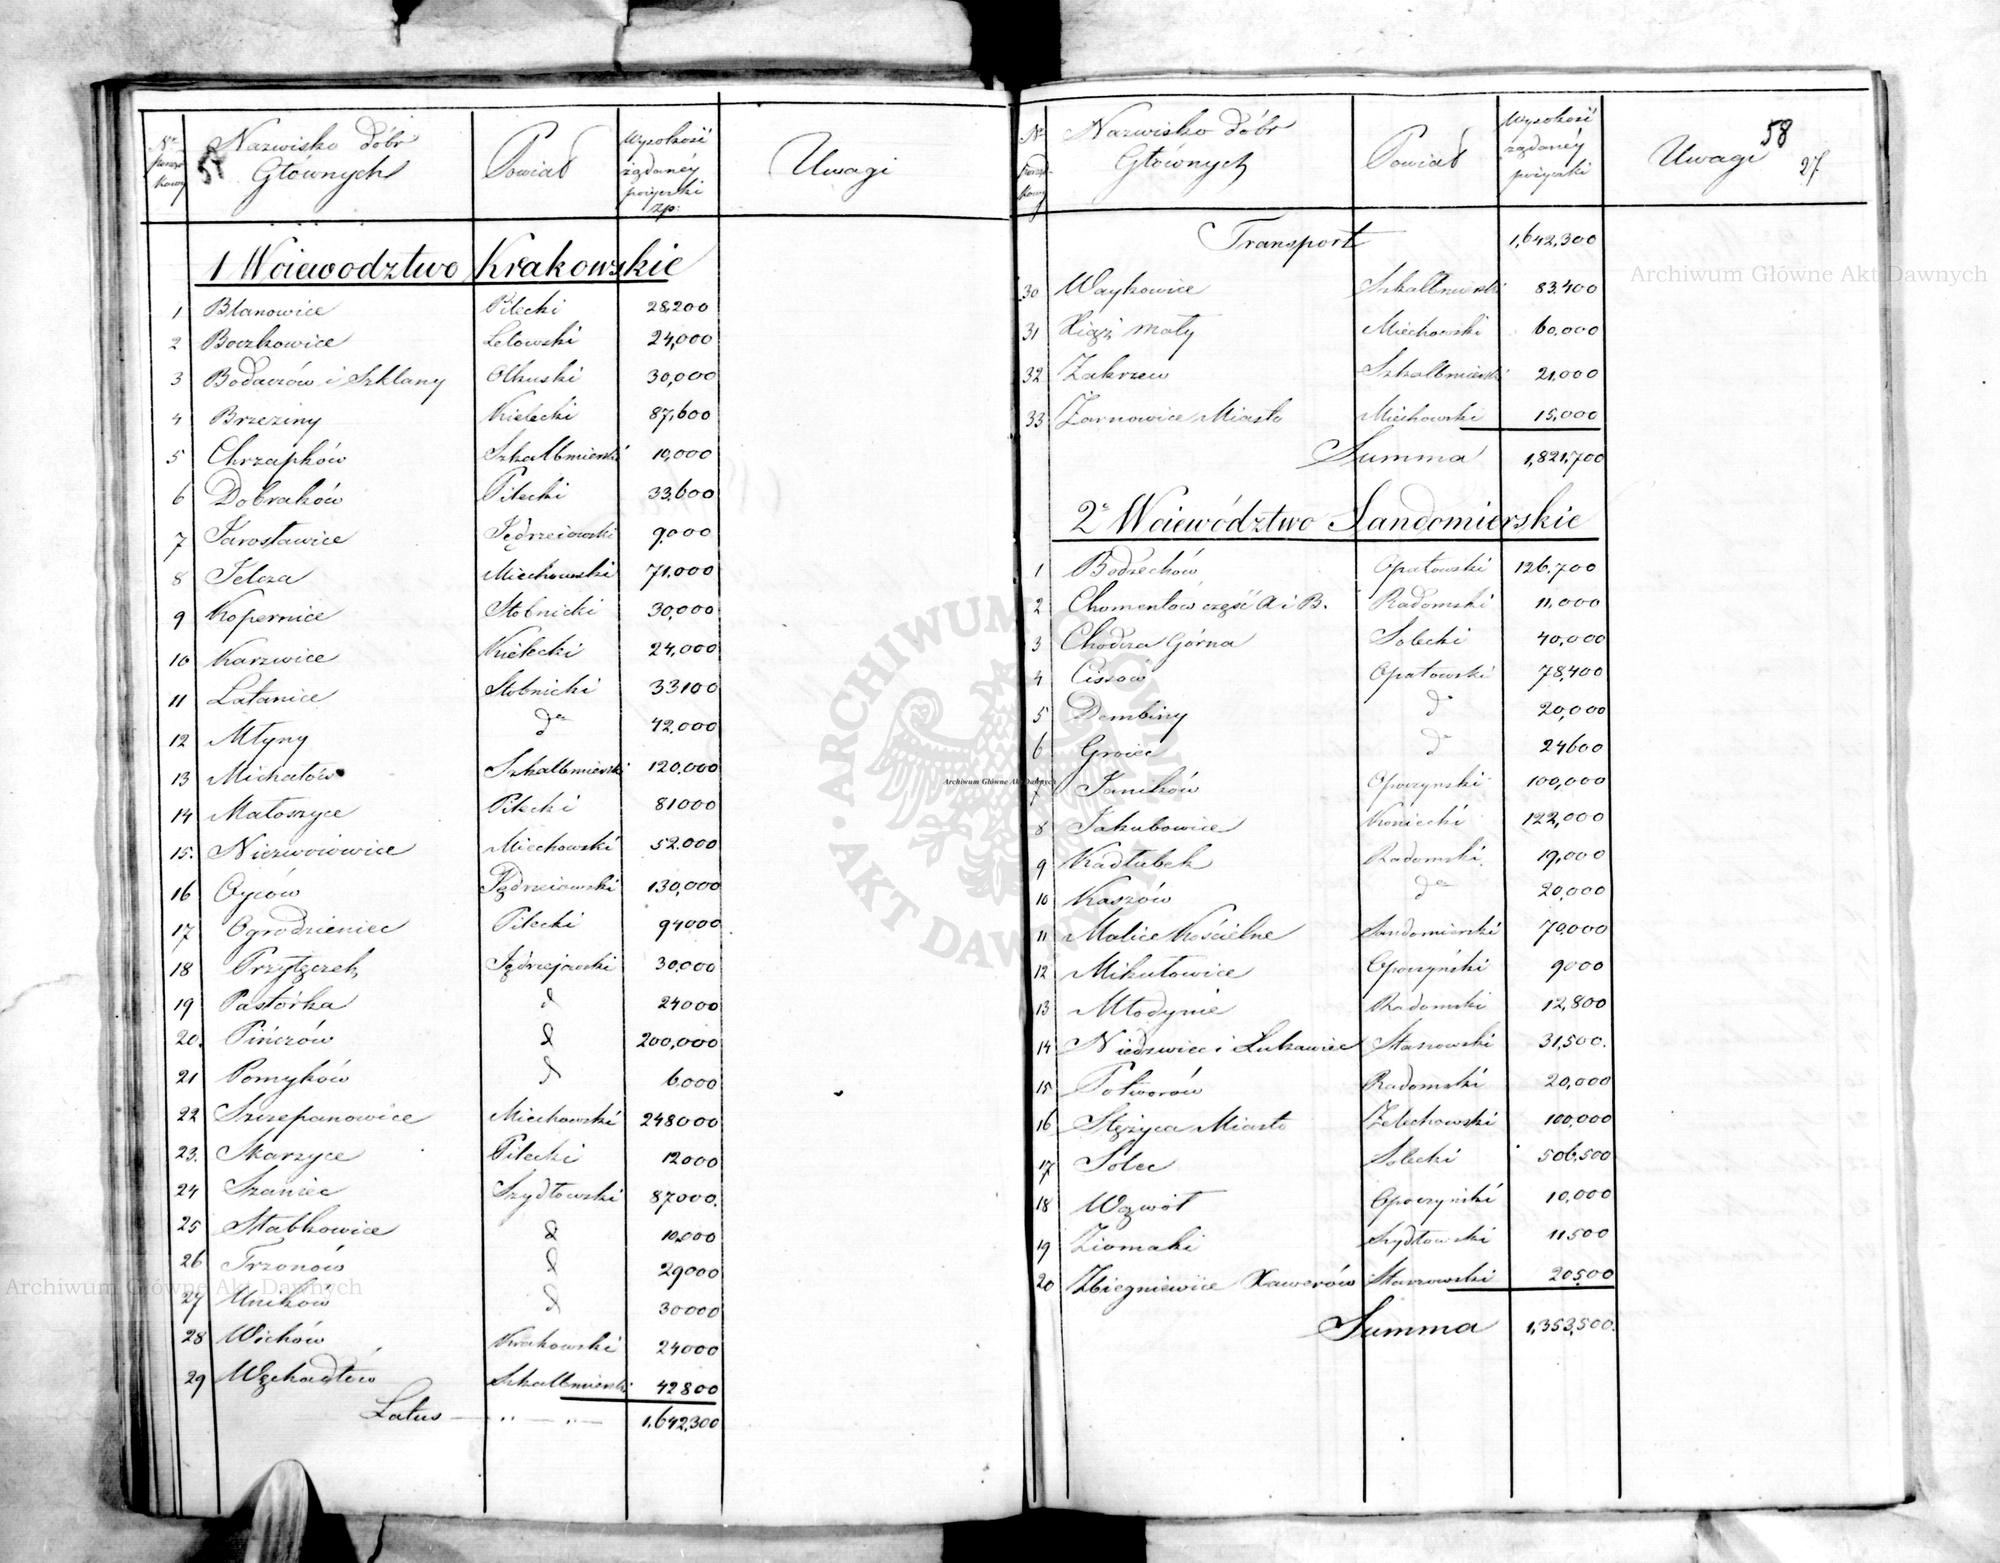 Nr porządkowy | Nazwisko dóbr Głównych | Powiat | Wysokość żądanéy pożyczki zp: | Uwagi
1 Woiewodztwo Krakowskie
1 Blanowice Pilecki 28,200
2 Boczkowice Lelowski 24,000
3 Bodaczów i Szklany Olkuski 30,000
4 Brzeziny Kielecki 87,600
5 Chrząpków Szkalbmierski 10,000
6 Dobraków Pilecki 33,600
7 Jarosławice Jędrzeiowski 9000
8 Jelcza Miechowski 71,000
9 Kopernice Stobnicki 30,000
10 Karzwice Kielecki 24,000
11 Łatanice Stobnicki 33100
12 Młyny do 42,000
13 Michałów Szkalbmierski 120,000
14 Małoszyce Pilecki 81000
15. Niezwoiowice Miechowski 52.000
16 Oyców Jędrzeiowski 130,000
17 Ogrodzieniec Pilecki 94000
18 Przyłęczek Jędrzejowski 30,000
19 Pastórka d 24000
20. Pińczów d 200,000
21 Pomyków d 6000
22 Szczepanowice Miechowski 248000
23. Skarzyce Pilecki 12000
24 Szaniec Szydłowski 87000.
25 Słabkowice d 10,000
26 Trzonów d 29000
27 Uników d 30000
28 Wichów Krakowski 24000
29 Węchadłów Szkalbmierski 42800
Latus — " — " — 1,642,300
58
27.
Nr porządkowy | Nazwisko dóbr Głównych | Powiat | Wysokość żądanéy pożyczki | Uwagi
Transport 1,642,300
30 Waykowice Szkalbmierski 83.400
31 Xiąż mały Miechowski 60.000
32 Zakrzew Szkalbmierski 21.000
33 Żarnowice Miasto Miechowski 15,000
Summa 1,821,700
2e Woiewództwo Sandomierskie
1 Bodzechów Opatowski 126.700
2 Chomentów część A i B. Radomski 11,000
3 Chodcza Górna Solecki 40,000
4 Ciszów Opatowski 78,400
5 Dembiny do 20,000
6 Groiec do 24600
7 Janików Opoczynski 100,000
8 Jakubowice Koniecki 122,000
9 Kadłubek Radomski. 19,000
10 Kaszów do 20,000
11 Malice Kościelne Sandomierski 70.000
12 Mikułowice Opoczyński 9000
13 Młodynie Radomski 12,800
14 Niedzwice i Łukawiec Staszowski 31,500.
15 Potworów Radomski 20,000
16 Stężyca Miasto Żelechowski 100,000
17 Solec Solecki 506,500
18 Wąwół Opoczyński 10,000
19 Ziomaki Szydłowski 11500
20 Zbiegniewice Xawerów Staszowski 20500
Summa 1,353,500.
Archiwum Główne Akt Dawnych
Archiwum Główne Akt Dawnych
Archiwum Główne Akt Dawnych
ARCHIWUM GŁÓWNE AKT DAWNYCH